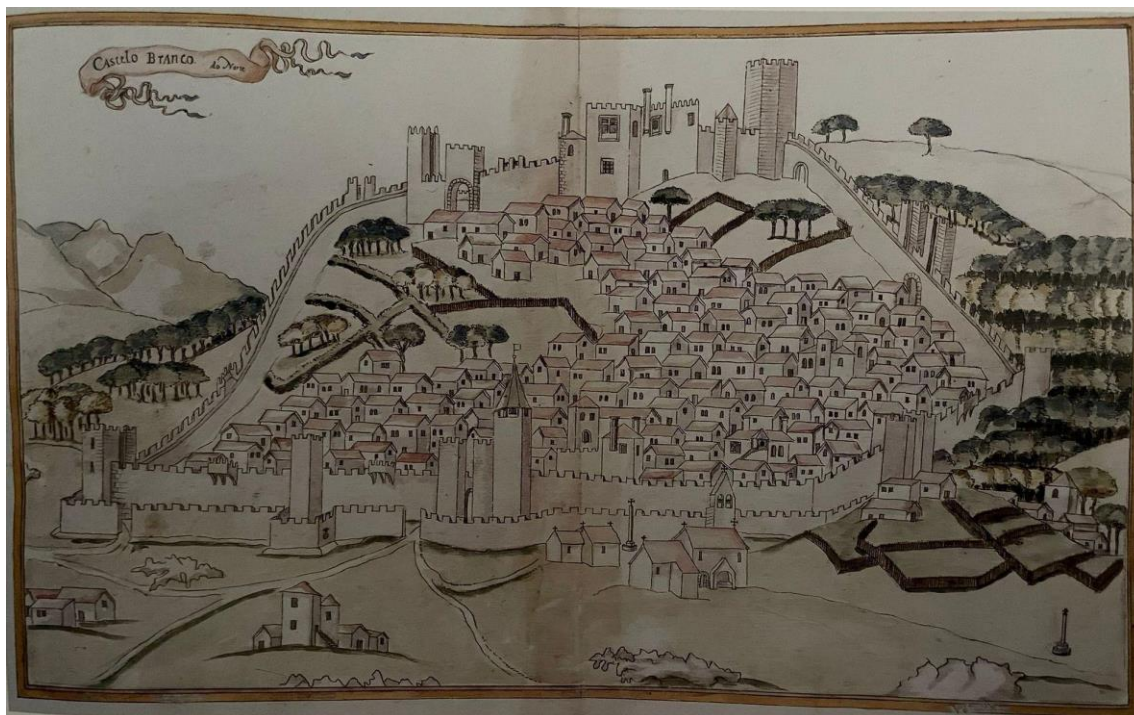 CASTELO BRANCO do Norte